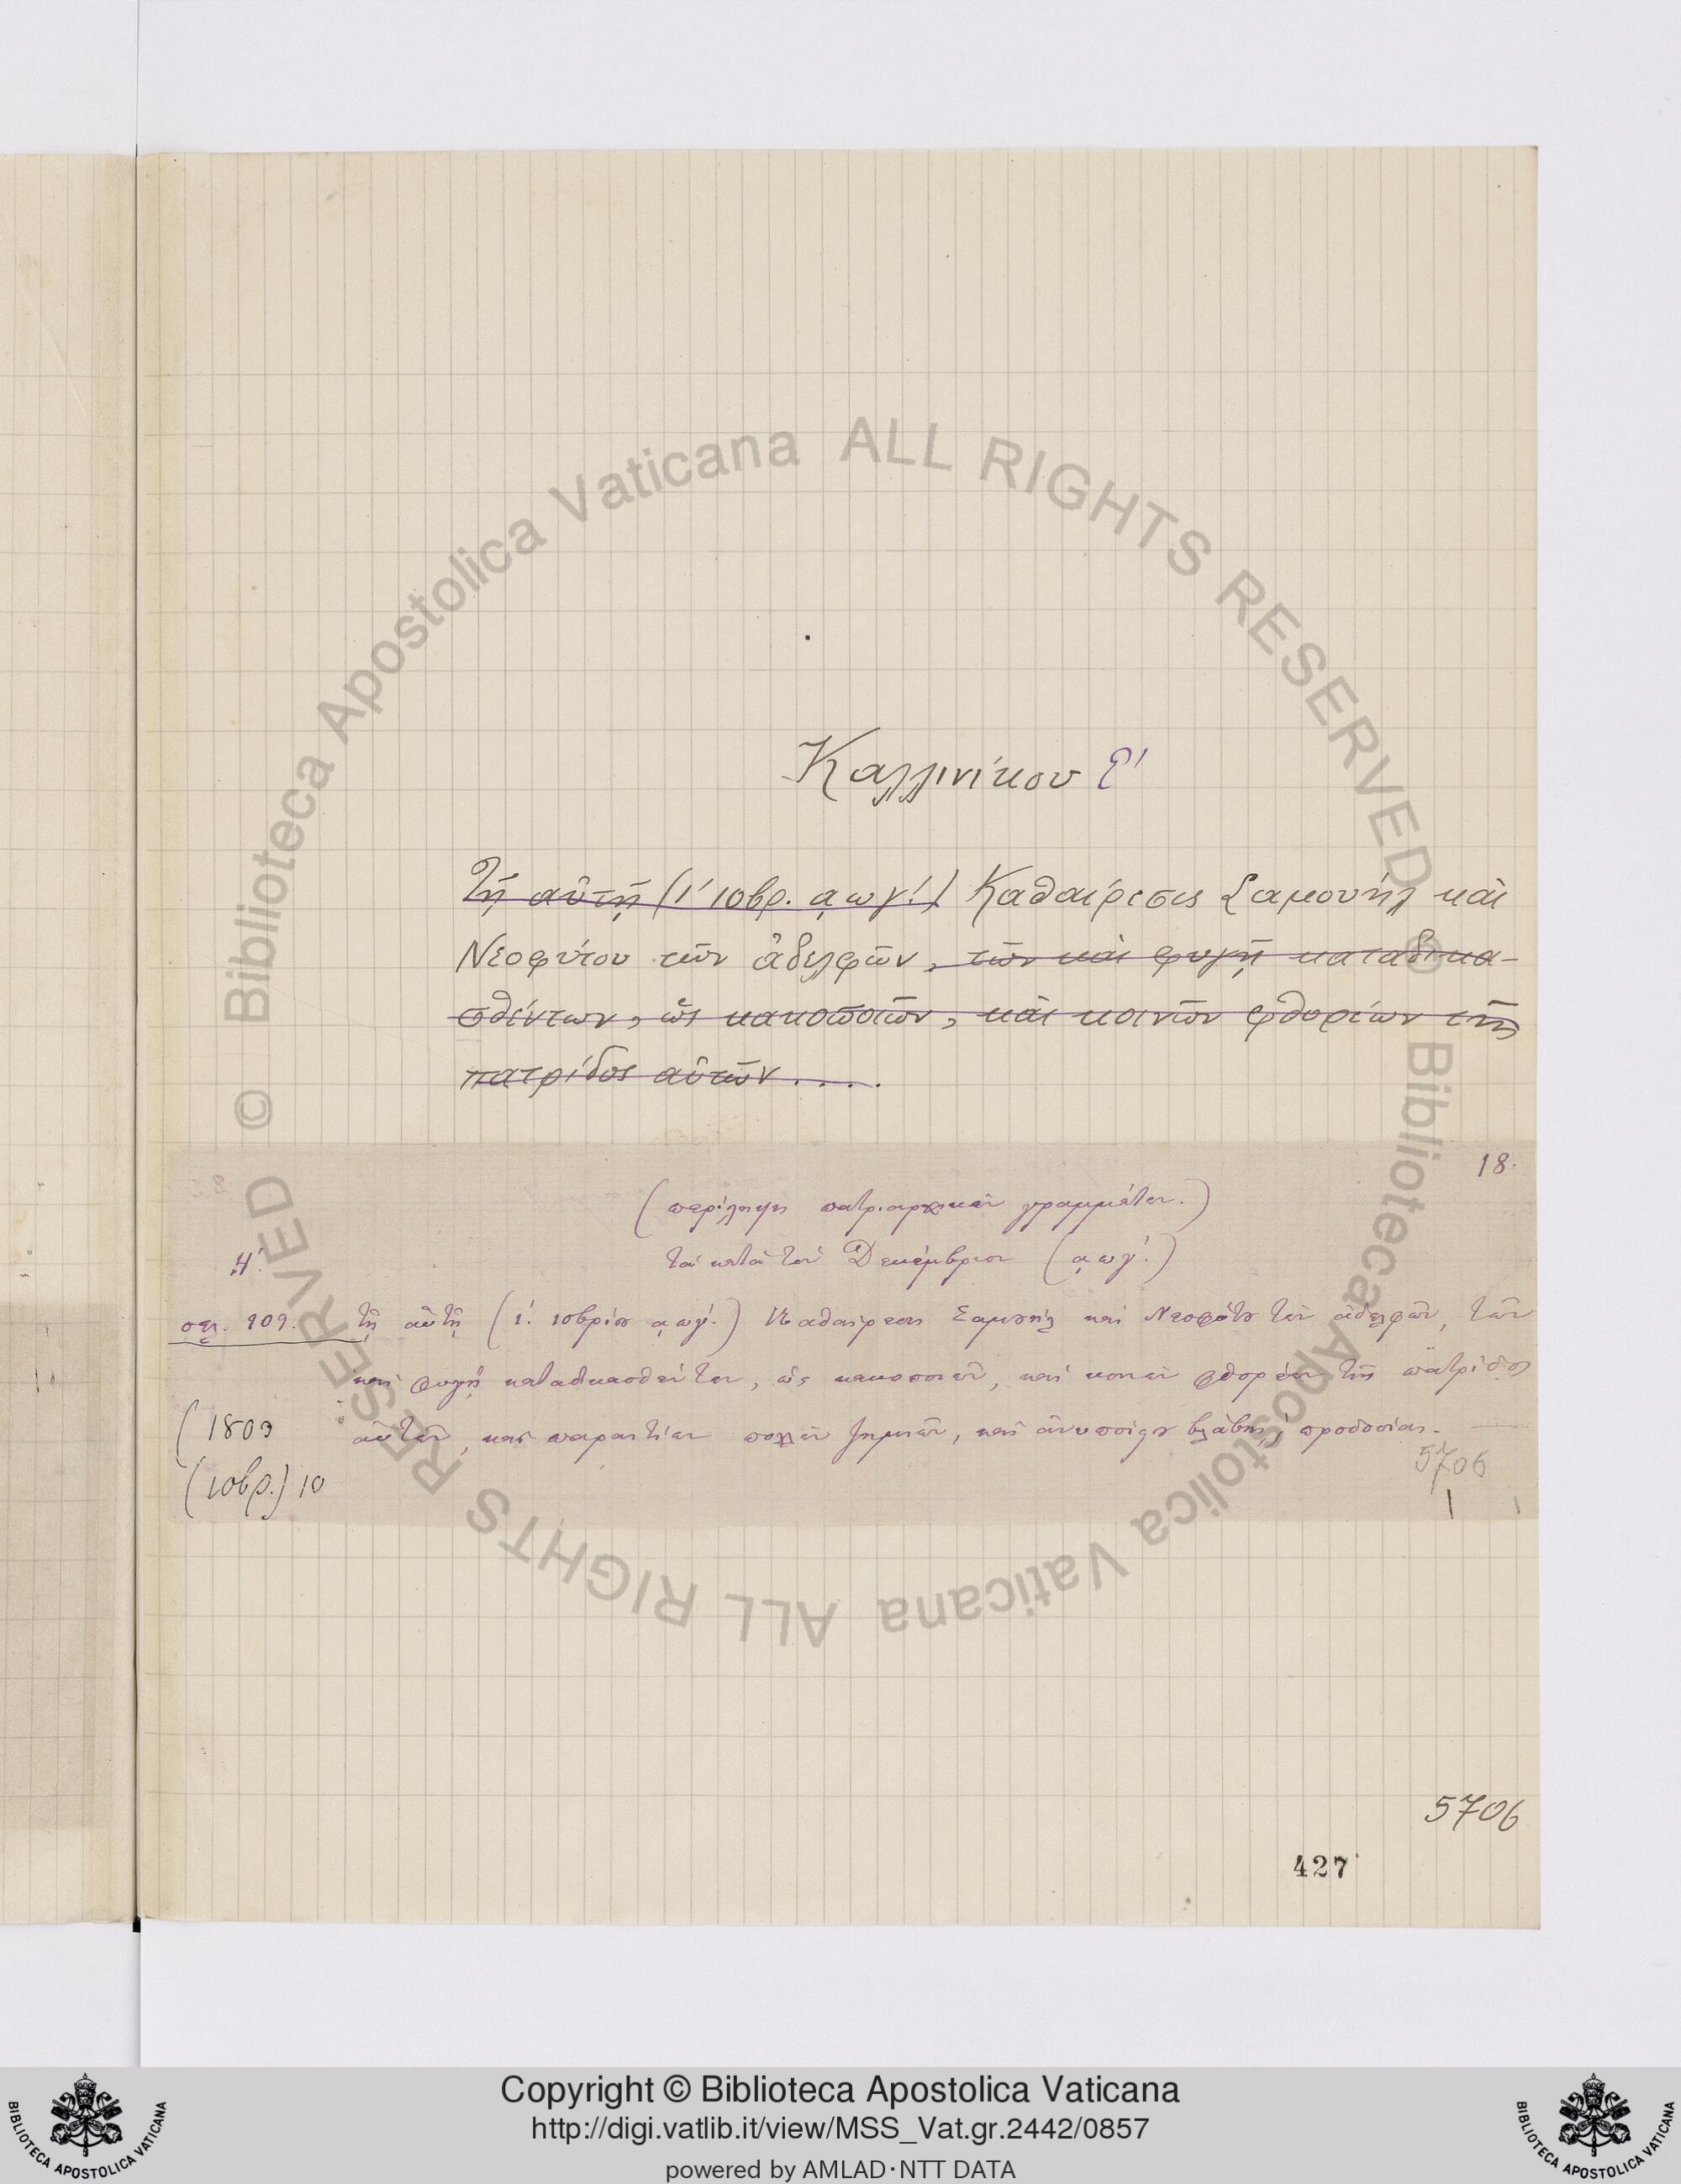 Καλλινίκου Ε'
Τῇ αὐτῇ (ι' 10βρ. ͵αωγ'.) Καθαίρεσις Σαμουὴλ καὶ
Νεοφύτου τῶν ἀδελφῶν, τῶν καὶ φυγῇ καταδικα-
σθέντων, ὡς κακοποιῶν, καὶ κοινῶν φθορέων τῆς
πατρίδος αὐτῶν.....
18.
(περίληψις πατριαρχικῶν γραμμάτων.)
τὰ κατὰ τὸν Δεκέμβριον (͵αωγ'.)
Η'.
σελ. 109. τῇ αὐτῇ (ι'. 10βρίου ͵αωγ'.) Καθαίρεσις Σαμουὴλ καὶ Νεοφύτου τῶν ἀδελφῶν, τῶν
καὶ φυγῇ καταδικασθέντων, ὡς κακοποιῶν, καὶ κοινῶν φθορέων τῆς πατρίδος
(1803 αὐτῶν, καὶ παραιτίων πολλῶν ζημιῶν, καὶ βλάβης, προδοσίας.
5706
(10βρ.) 10
5706
427
Biblioteca Apostolica Vaticana ALL RIGHTS RESERVED ©
Biblioteca Apostolica Vaticana ALL RIGHTS RESERVED ©
Copyright © Biblioteca Apostolica Vaticana
http://digi.vatlib.it/view/MSS_Vat.gr.2442/0857
powered by AMLAD·NTT DATA
BIBLIOTECA APOSTOLICA VATICANA
BIBLIOTECA APOSTOLICA VATICANA